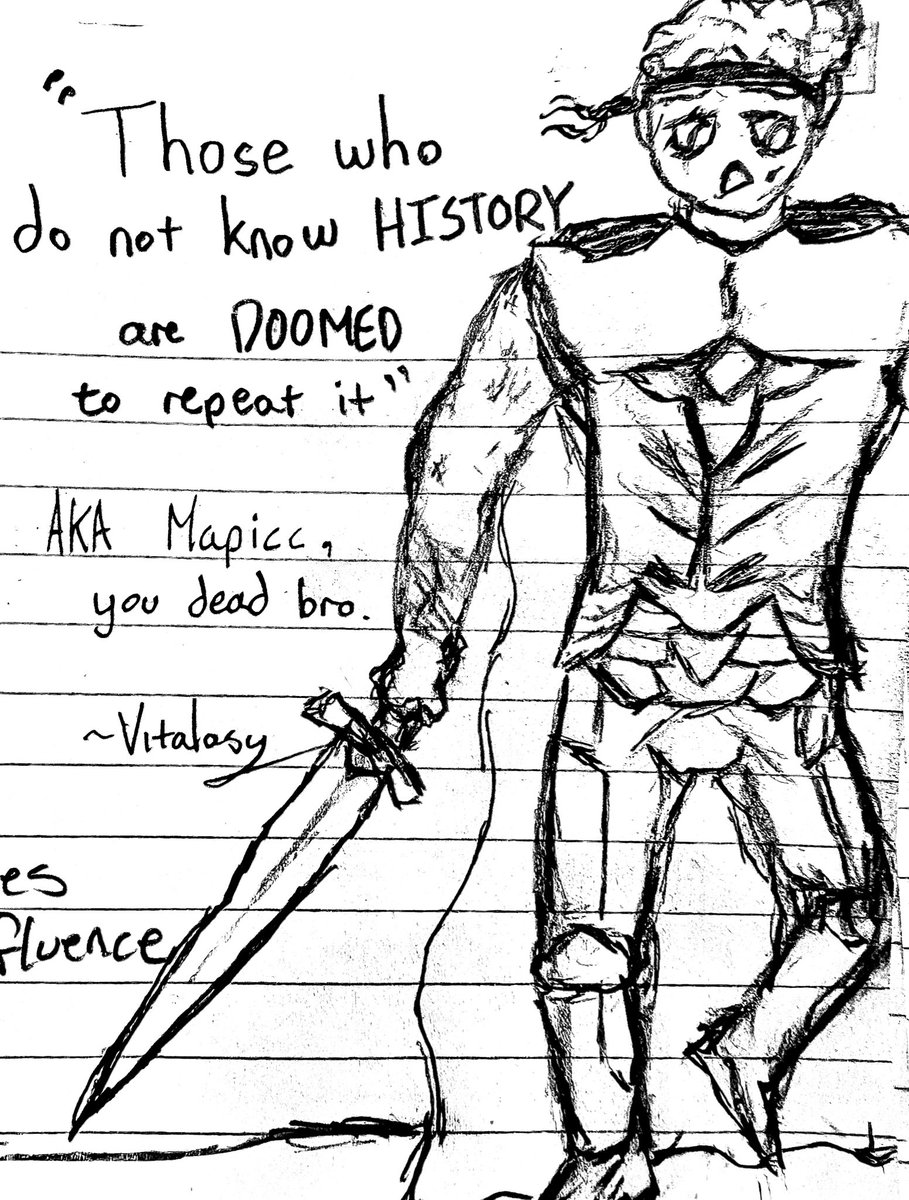 "Those who
do not know HISTORY
are DOOMED
to repeat it"
AKA Mapicc,
you dead bro.
~Vitalasy
es
fluence